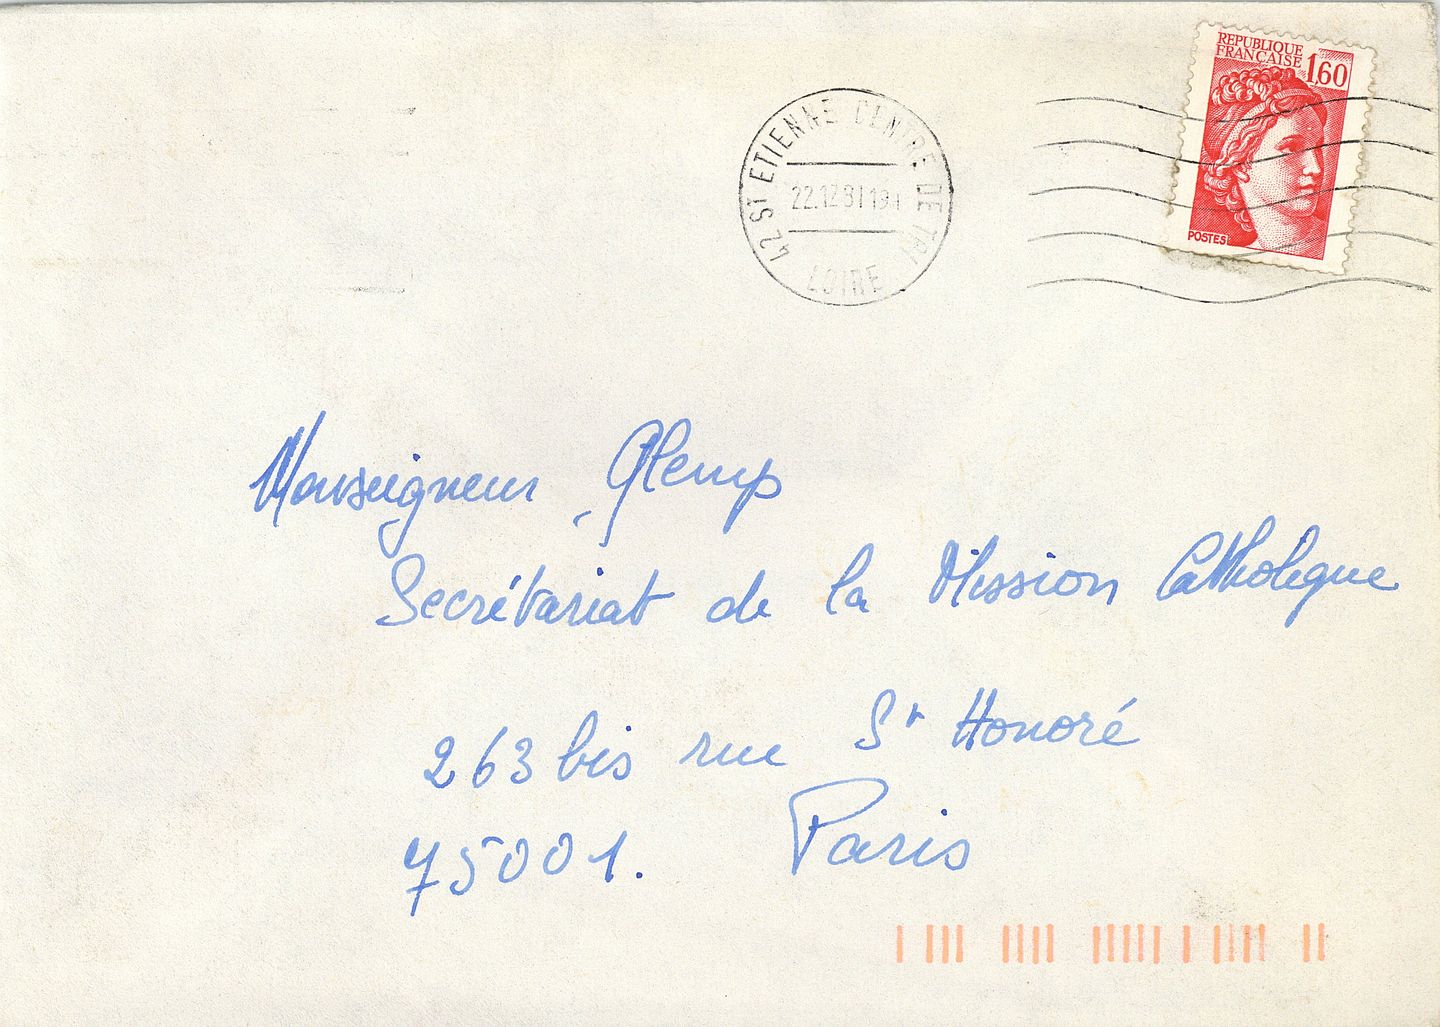 REPUBLIQUE
FRANCAISE
1,60
POSTES
42 ST ETIENNE CENTRE DE TRI
22.12.81
LOIRE
Monseigneur Glemp
Secrétariat de la Mission Catholique
263 bis rue St Honoré
75001. Paris